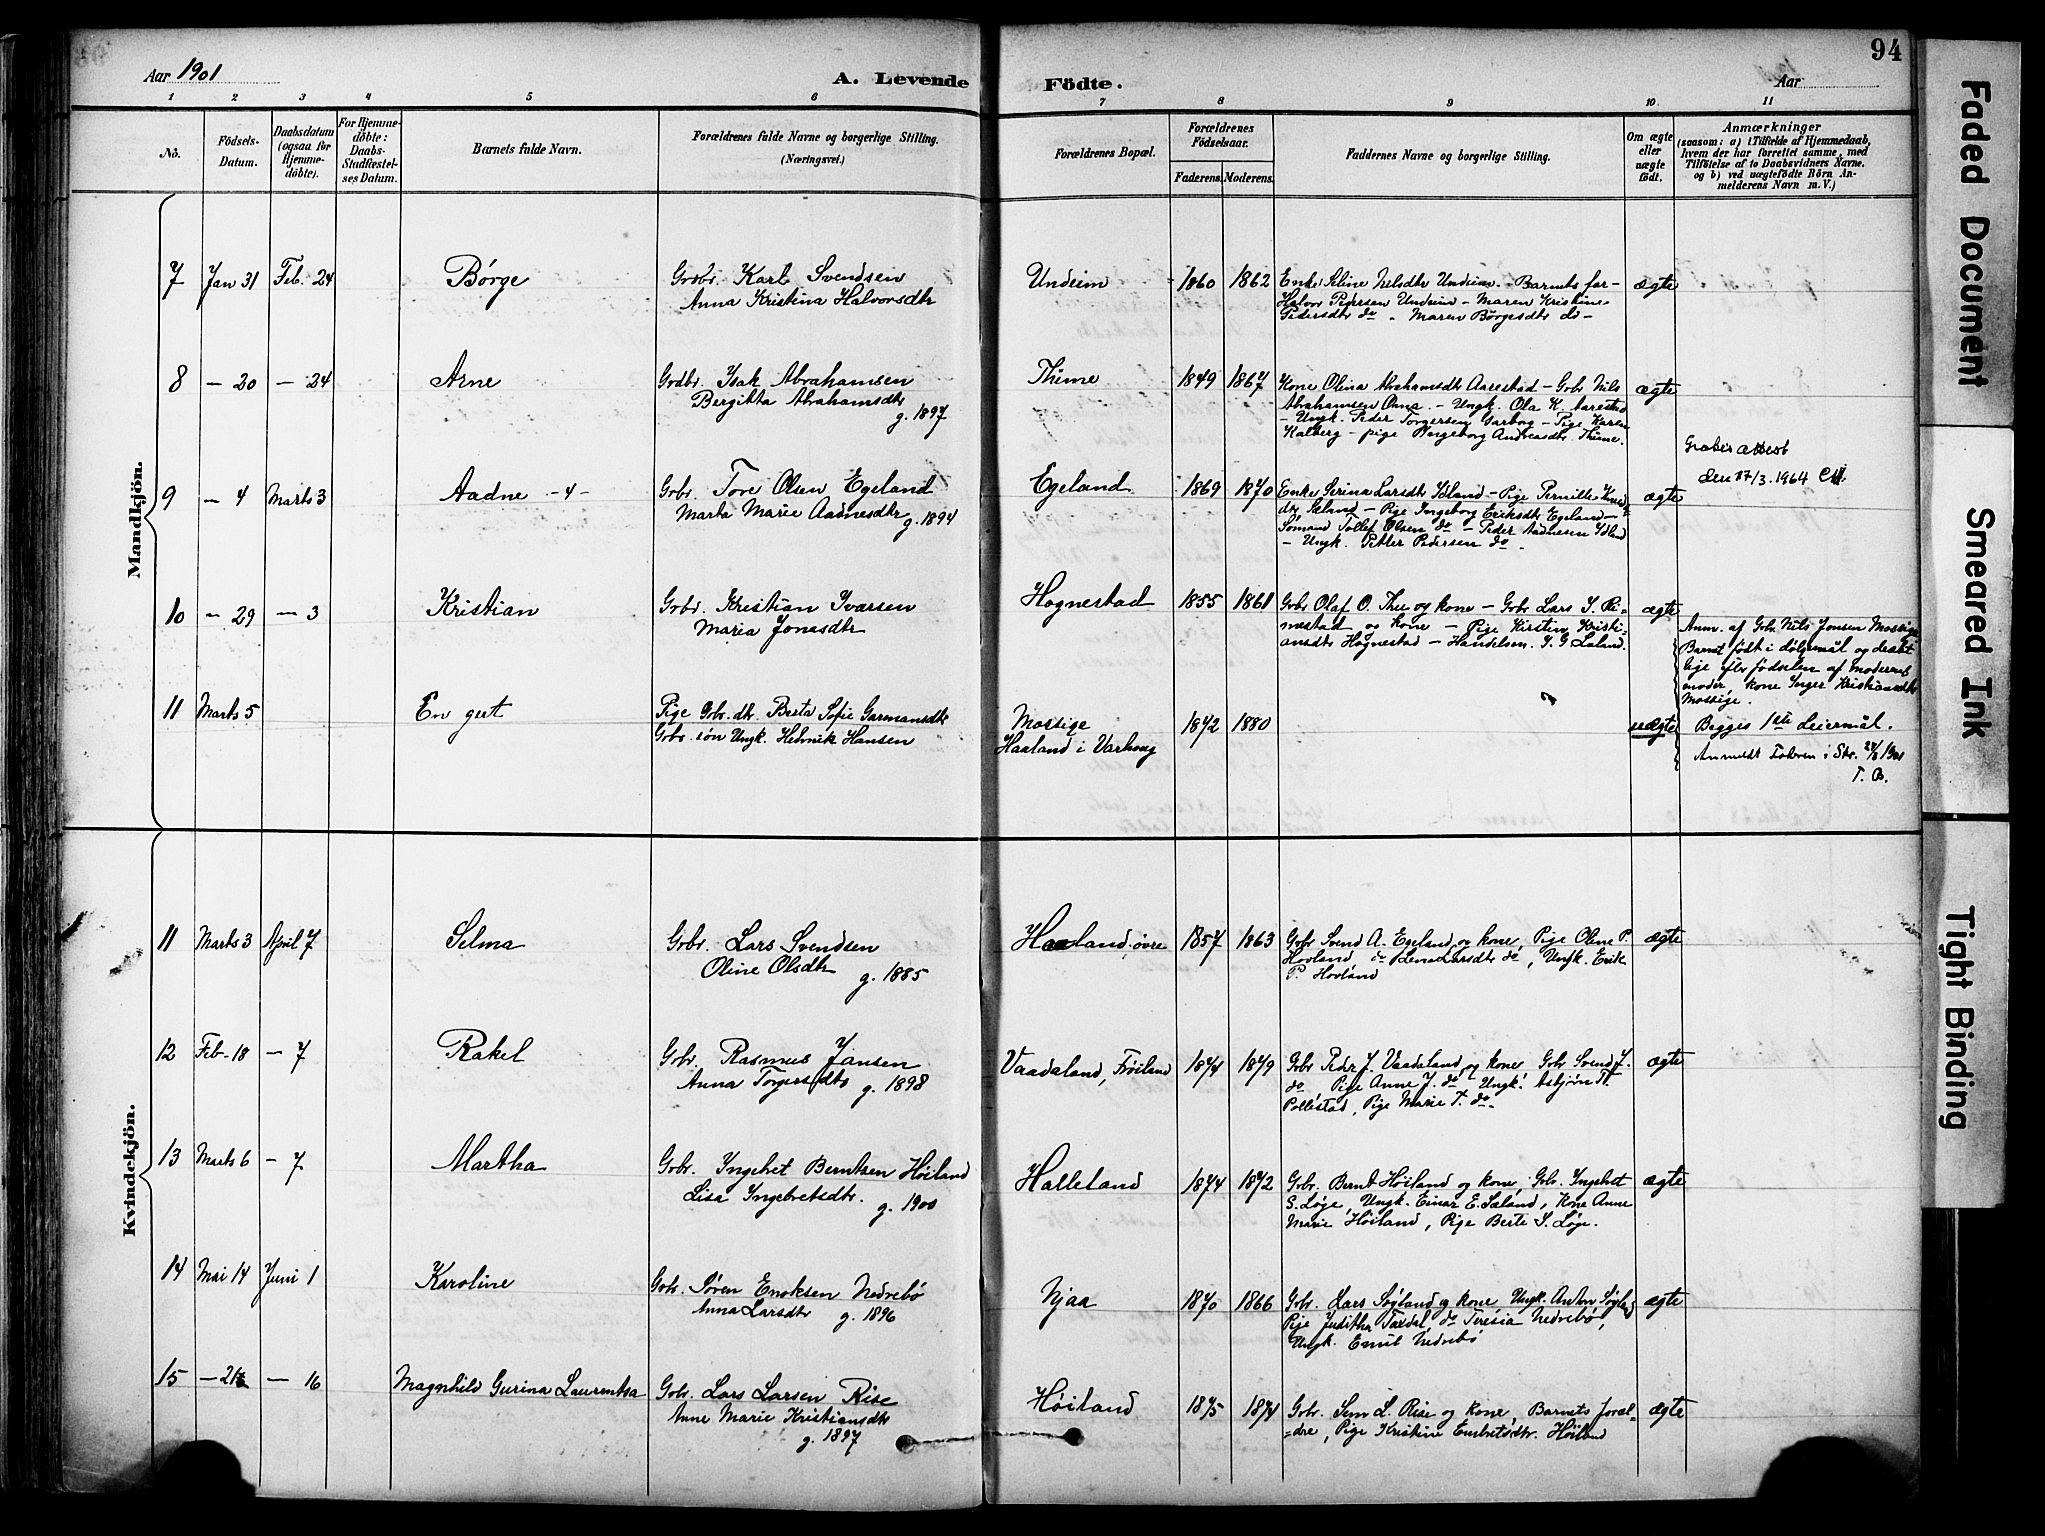 94
Aar 1901
A. Levende Födte.
Aar
1 2 3 4 5 6 7 8 9 10 11
No.
Födsels-Datum.
Daabsdatum (ogsaa for Hjemme-döbte).
For Hjemme-döbte: Daabs-Stadfæstel-ses Datum.
Barnets fulde Navn.
Forældrenes fulde Navne og borgerlige Stilling. (Næringsvei.)
Forældrenes Bopæl.
Forældrenes Födselsaar.
Faderens. Moderens.
Faddernes Navne og borgerlige Stilling.
Om ægte eller uægte födt.
Anmærkninger
(saasom: a) i Tilfælde af Hjemmedaab,
hvem der har forrettet samme, med
Tilföielse af to Daabsvidners Navne.
og b) ved uægtefödte Börn An-
melderens Navn m. V.)
Mandkjön.
7 Jan 31 Feb. 24 Börge
Grdbr. Karl Svendsen
Anna Kristina Halvorsdtr
Undeim 1860 1862
Enke Seline Nilsdtr Undeim - Barnets far -
Halvor Pedersen Undeim - Maren Kristine
Pedersdtr do - Maren Börgesdtr do -
ægte
8 - 20 - 24 Arne
Grdbr. Isak Abrahamsen
Bergitta Abrahamsdtr
g. 1897
Thime 1849 1867
Kone Olina Abrahamsdtr Aarestad - Gbr. Nils
Abrahamsen Onna - Ungk. Ola K. Aarestad
- Ungk. Peder Torgersen Garborg - Pige Karen
Kalberg - pige Ingeborg Andreasdtr Thime.
ægte
9 - 4 Marts 3 Aadne -4-
Grbr. Tore Olsen Egeland
Marta Marie Aadnesdtr g. 1894
Egeland 1869 1870
Enke Serina Larsdtr Idland - Pige Pernille
dtr - Pige Ingeborg Eriksdtr Egeland -
Sömand Tollef Olsen do - Peder Aadnesen Idland
- Ungk. Petter Pedersen do -
ægte
attest
den 17/3. 1964
10 - 29 - 3 Kristian
Grbr. Kristian Ivarsen
Maria Jonasdtr
Hognestad 1855 1861
Gbr Olaf O. Thu og kone - Gbr Lars S. Ri-
mestad og kone - Pige Kirstine Kristi-
ansdtr Hognestad - Handelsm. S. G. Laland.
ægte
11 Marts 5 En gut
Pige Gbr. dtr. Berta Sofie Garmansdtr
Gbr. sön Ungk. Henrik Hansen
Mossige
Haaland i Varhoug
1872 1880
uægte
Anm. af Gbr. Nils Jonsen Mossige
Barnet født i dølgsmål og dræbt
lige efter fødselen af moderens
moder, kone Inger Kristiansdtr
Mossige.
Begges 1ste Leiermål.
Anmeldt Fabren i Str. 28/8 1901
T. B.
Kvindekjön.
11 Marts 3 April 7 Selma
Grbr. Lars Svendsen
Oline Olsdtr
g. 1885
Haaland, øvre 1857 1863
Gbr Svend A. Egeland og kone, Pige Oline P.
Hovland, do Lena Larsdtr do, Ungk. Erik
P. Hovland
ægte
12 Feb. 18 - 7 Rakel
Gbr. Rasmus Jansen
Anna Torgersdtr g. 1898
Vaadaland, Frøiland 1874 1879
Gbr Peder J. Vaadaland og kone, Gbr Svend J.
do Pige Anne J. do Ungk. Asbjørn T.
Pollestad, Pige Marie T. do.
ægte
13 Marts 6 - 7 Martha
Gbr. Ingebret Berntsen Høiland
Lisa Ingebretsdtr.
g. 1900
Halleland 1874 1872
Gbr. Bernt Høiland og kone, Gbr. Ingebret
S. Løge, Ungk. Einar E. Sæland, Kone Anne
Marie Høiland, Pige Berte S. Løge.
ægte
14 Mai 14 Juni 1 Karoline
Gbr. Søren Enoksen Nedrebø
Anna Larsdtr
g. 1896
Njaa 1870 1866
Gbr. Lars Søyland og kone Ungk. Anton Søyland
Pige Juditha Taxdal, do Teresia Nedrebø,
Ungk. Emil Nedrebø
ægte
15 - 16 Magnhild Gurina Laurentsa
Gbr. Lars Larsen Rise
Anne Marie Kristiansdtr
g. 1897
Høiland 1875 1874
Gbr. Sem L. Rise og kone, Barnets foræl-
dre, Pige Kristine Embretsdtr. Høiland
ægte
Faded Document
Smeared Ink
Tight Binding